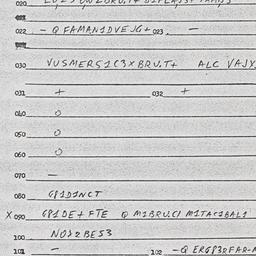 020
022 - Q FAMAN1DVEJG+ 023 -
030 VUSMERS1C3XBRU.T+ ALC VAJY
031 + 032 +
040 0
050 0
060 0
070 -
080 G81D1NCT
X 090 G81DE+FTE Q M1BRU.C1 M1TAC1BAL1
100 NO12BE53
101 - 102 -Q ERG83